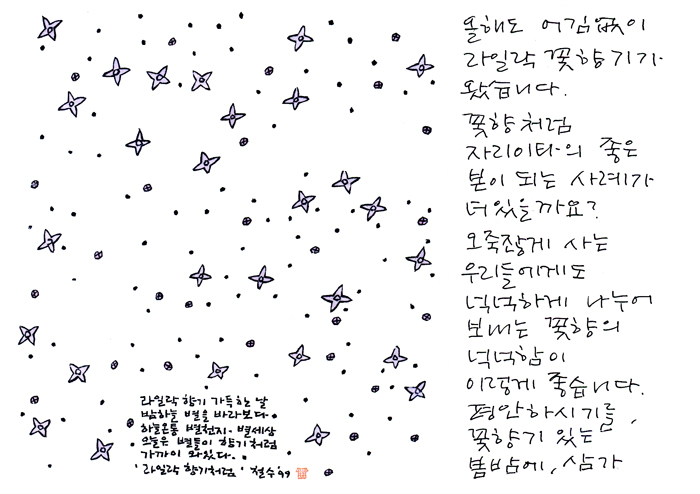 라일락 향기 가득한 날
밤하늘 별을 바라보다.
하늘은통 별천지. 별세상
오늘은 별들이 향기처럼
가까이 와있다.
'라일락 향기처럼' 철수 '99
올해도 어김없이
라일락 꽃향기가
왔습니다.
꽃향처럼
자리이타의 좋은
본이 되는 사례가
더 있을까요?
오죽잖게 사는
우리들에게도
넉넉하게 나누어
보내는 꽃향의
넉넉함이
이렇게 좋습니다.
평안하시기를,
꽃향기 있는
봄밤에, 삼가